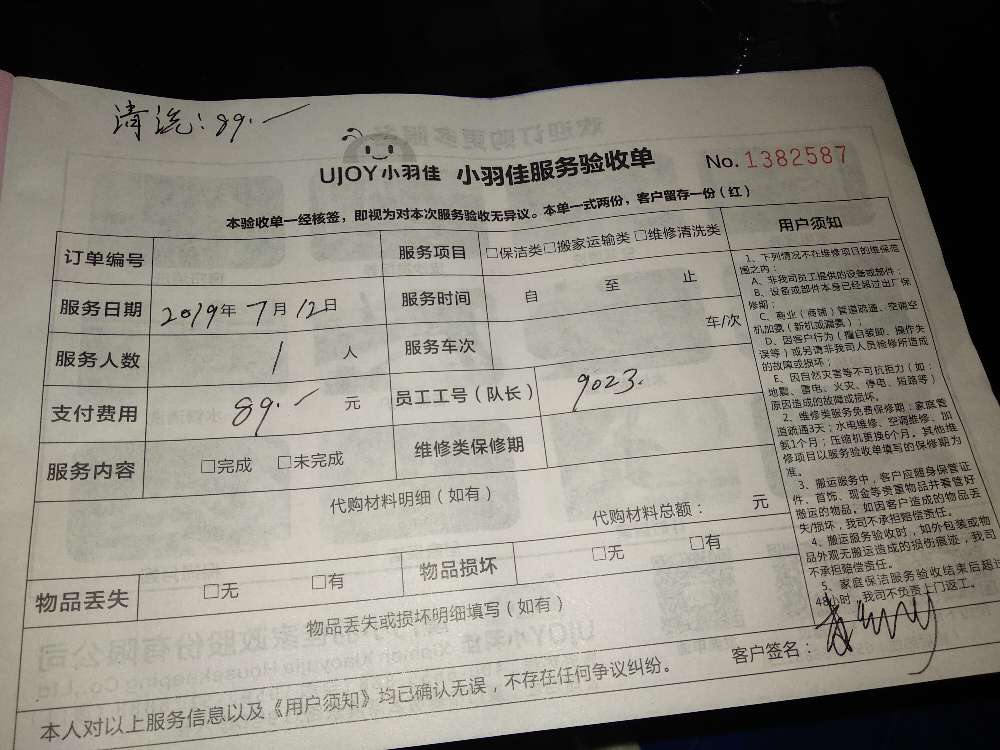 清洗：89.—
UJOY小羽佳 小羽佳服务验收单 No. 1382587
本验收单一经核签，即视为对本次服务验收无异议。本单一式两份，客户留存一份（红）
订单编号 服务项目 □保洁类□搬家运输类 □维修清洗类
服务日期 2019年7月12日 服务时间 自 至 止
服务人数 1 人 服务车次 车/次
支付费用 89.— 元 员工工号（队长） 9023.
服务内容 □完成 □未完成 维修类保修期
代购材料明细（如有）
代购材料总额： 元
物品丢失 □无 □有 物品损坏 □无 □有
物品丢失或损坏明细填写（如有）
本人对以上服务信息以及《用户须知》均已确认无误，不存在任何争议纠纷。 客户签名：
用户须知
1、下列情况不在维修项目的维保范
围之内：
A、非我司员工提供的设备或部件；
B、设备或部件本身已经超过出厂保
修期；
C、商业（商铺）管道疏通、空调空
机加氨（新机或漏氨）；
D、因客户行为（擅自装卸、操作失
误等）或另请非我司人员检修所造成
的故障或损坏；
E、因自然灾害等不可抗拒力（如：
地震、雷电、火灾、停电、短路等）
原因造成的故障或损坏。
2、维修类服务免费保修期：家庭管
道疏通3天；水电维修、空调维修、加
氨1个月；压缩机更换6个月。其他维
修项目以服务验收单填写的保修期为
准。
3、搬运服务中，客户应随身保管证
件、首饰、现金等贵重物品并看管好
搬运的物品。如因客户造成的物品丢
失/损坏，我司不承担赔偿责任。
4、搬运服务验收时，如外包装或物
品外观无搬运造成的损伤痕迹，我司
不承担赔偿责任。
5、家庭保洁服务验收结束后超过
48小时，我司不负责上门返工。